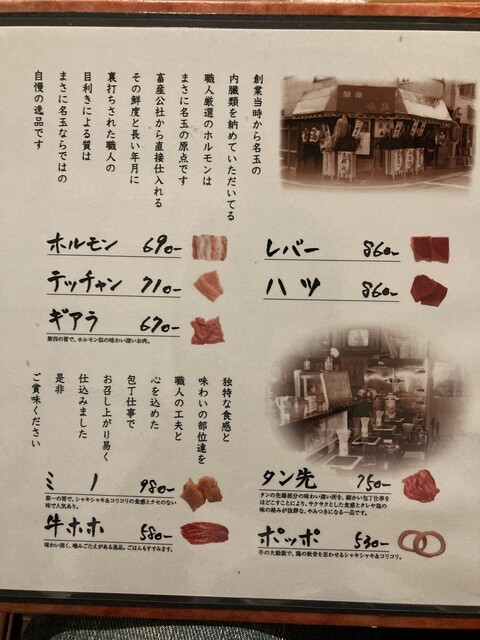 創業当時から名玉の
内臓類を納めていただいてる
職人厳選のホルモンは
まさに名玉の原点です
畜産公社から直接仕入れる
その鮮度と長い年月に
裏打ちされた職人の
目利きによる質は
まさに名玉ならではの
自慢の逸品です
ホルモン 690-
テッチャン 710-
ギアラ 670-
第四の胃で、ホルモン似の味わい深いお肉。
レバー 860-
ハツ 860-
独特な食感と
味わいの部位達を
職人の工夫と
心を込めた
包丁仕事で
お召し上がり易く
仕込みました
是非
ご賞味ください
ミノ 980-
第一の胃で、シャキシャキ&コリコリの食感とクセのない
味で人気あり。
牛ホホ 580-
味わい深く、噛みごたえがある逸品。ごはんもすすみます。
タン先 750-
タンの先端部分の味わい深い所を、細かい包丁仕事を
ほどこすことにより、サクサクとした食感とタレや塩の
味の絡みが抜群な、やみつきになる一品です。
ポッポ 530-
牛の大動脈で、鶏の軟骨を思わせるシャキシャキ&コリコリ。